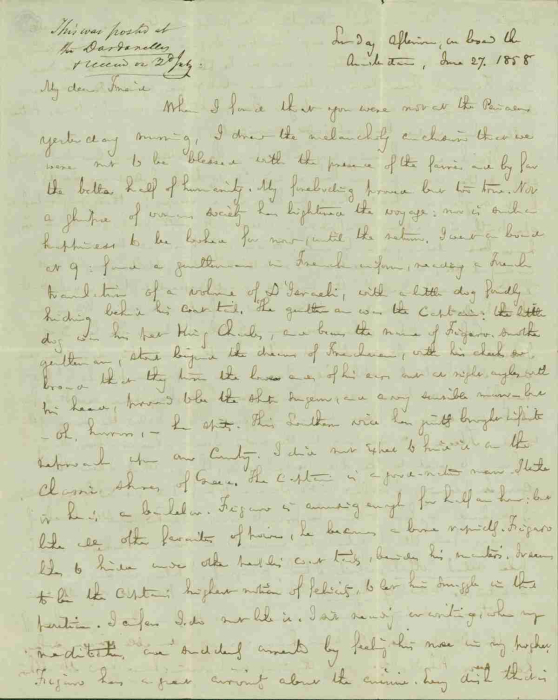 This was posted at
the Dardanelles
& received on 2d July.
Sunday Afternoon, on board the
June 27. 1858
My dear Friend
When I found that you were not at the Piraeus
yesterday morning, I drew the melancholy conclusion that we
were not to be blessed with the presence of the fairer and by far
the better half of humanity. My foreboding proved but too true. Not
a glimpse of woman's society has brightened the voyage: nor is such
happiness to be looked for now, until the return. I went on board
at 9: found a gentleman in French uniform, reading a French
translation of a volume of D'Israeli, with a little dog
hiding behind his coat tail. The gentleman was the Captain: the little
dog was his pet King Charles, and bears the name of Figaro. Another
gentleman, stout beyond the dreams of Frenchmen, with his cheeks so
broad that they turn the lower ends of his ears out at right angles with
his head, proved to be the ship's surgeon, and a very sensible man - but
- oh, horrors, - he spits. This Southern vice has brought infinite
reproach upon our Country. I did not expect to find it on the
Classic shores of Greece. The Captain is a good-natured man. I take
it he is a bachelor. Figaro is amusing enough for half an hour; but
like all other favorites of power, he becomes a bore rapidly. Figaro
likes to hide under other people's coat tails, besides his master's. It seems
to be the Captain's highest notion of felicity, to let him snuggle in this
position. I confess I do not like it. I am reading or writing, when my
meditations are suddenly arrested by feeling his nose in my pocket.
Figaro has a great curiosity about the cuisine. Every dish that is